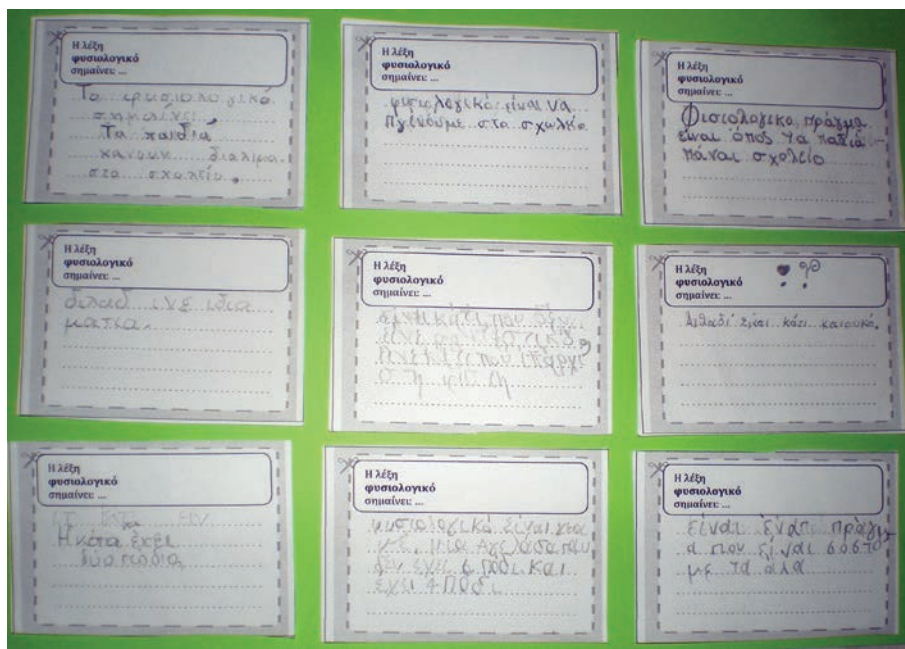 Η λέξη
φυσιολογικό
σημαίνει: ...
Το φυσιολογικό
σημαίνει
Τα παιδιά
κάνουν διάλιμα
στο σχολείο.
Η λέξη
φυσιολογικό
σημαίνει: ...
φυσιολογικό είναι να
πιγένουμε στο σχωλείο
Η λέξη
φυσιολογικό
σημαίνει: ...
Φισιολογικο πράγμα
είναι όπος τα παπιά
πάναι σχολείο
Η λέξη
φυσιολογικό
σημαίνει: ...
διλαδ ινε ιδια
ματια.
Η λέξη
φυσιολογικό
σημαίνει: ...
είναι κάτι που δεν
ινε
ινε κάτι που ιπάρχι
σ τη φίσι
Η λέξη
φυσιολογικό
σημαίνει: ...
Διλαδί είναι κάτι καιουκό.
Η λέξη
φυσιολογικό
σημαίνει: ...
Η κότα έχει
δύο ποδια
Η λέξη
φυσιολογικό
σημαίνει: ...
φυσιολογικό είναι για
μ.ε. μια Αγελάδα που
δεν έχει 6 πόδι και
έχει 4 πόδι
Η λέξη
φυσιολογικό
σημαίνει: ...
είναι ένα πράγμ
α που είναι σοστο
με τα άλα